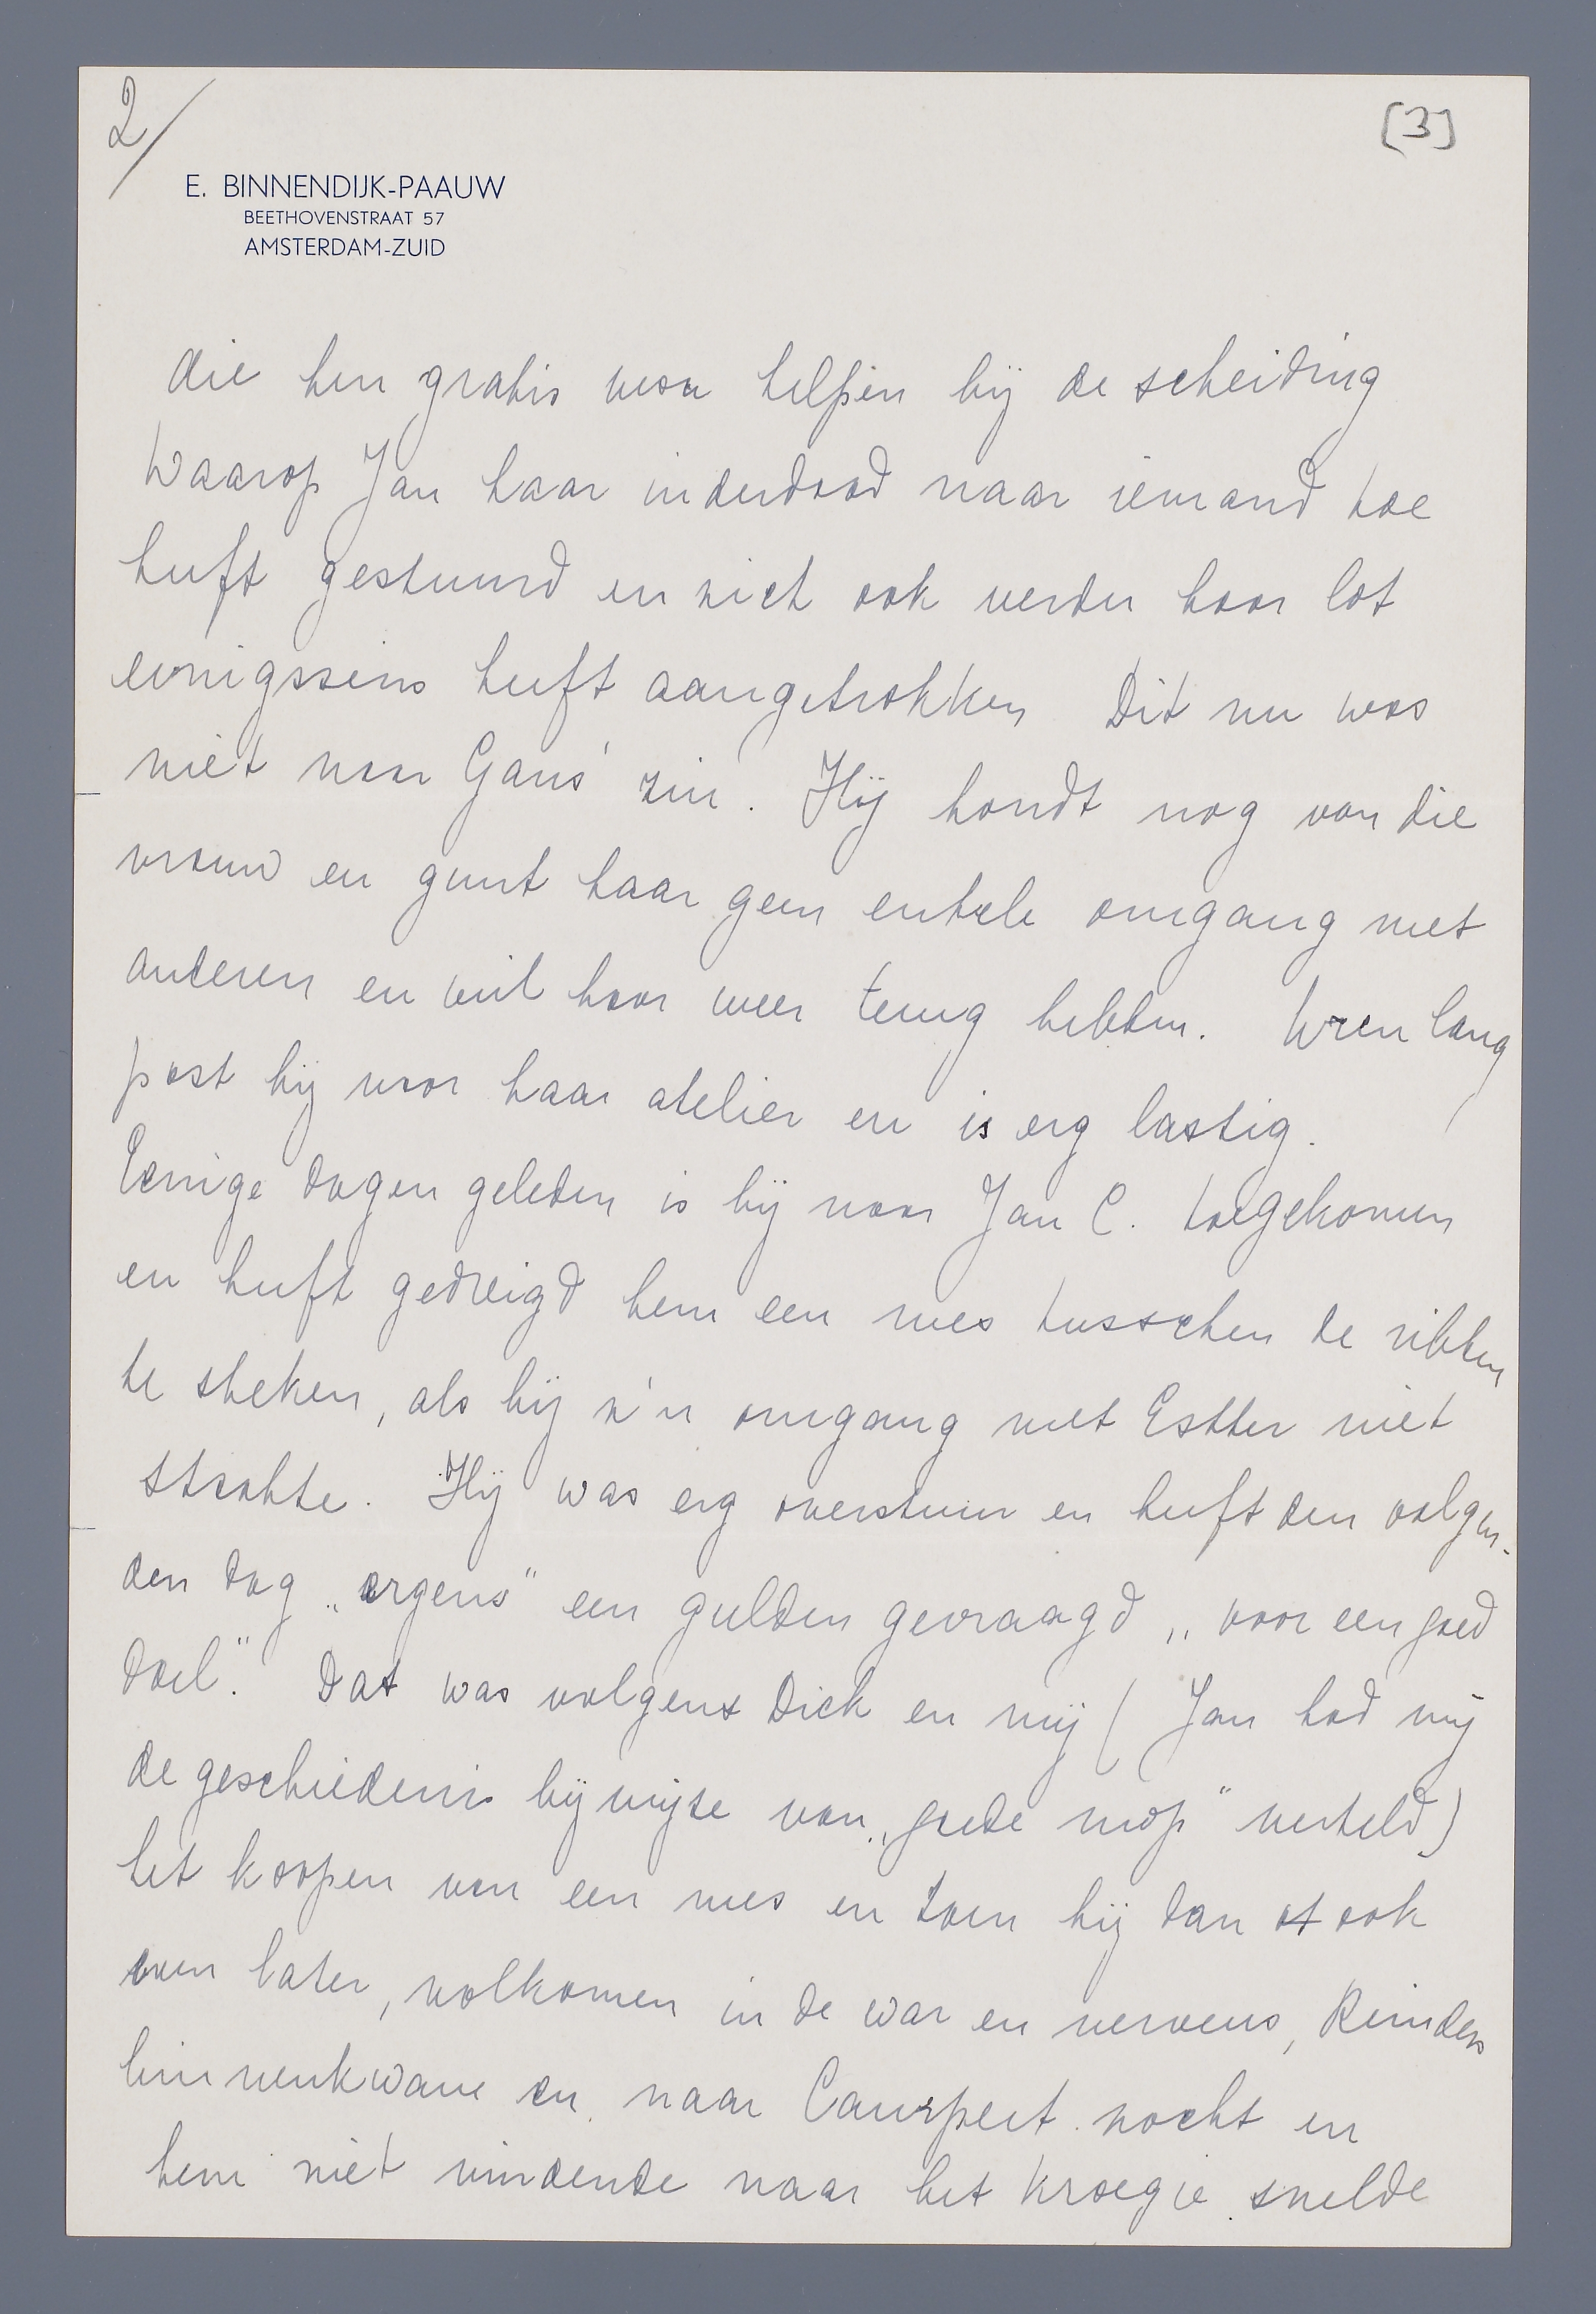 2/
[3]
E. BINNENDIJK-PAAUW
BEETHOVENSTRAAT 57
AMSTERDAM-ZUID
die hen gratis wou helpen bij de scheiding
Waarop Jan haar inderdaad naar iemand toe
heeft gestuurd en zich ook verder haar lot
eenigszins heeft aangetrokken Dit nu was
niet naar Gans' zin. Hij houdt nog van die
vrouw en gunt haar geen enkele omgang met
anderen en wil haar weer terug hebben. Uren lang
post hij voor haar atelier en is erg lastig.
Eenige dagen geleden is hij naar Jan C. toegekomen
en heeft gedreigd hem een mes tusschen de ribben
te steken, als hij z'n omgang met Esther niet
staakte. Hij was erg overstuur en heeft den volgen-
den dag „ergens" een gulden gevraagd „voor een goed
doel". Dat was volgens Dick en mij (Jan had mij
de geschiedenis bij wijze van „goede mop" verteld)
het koopen van een mes en toen hij dan ot ook
even later, volkomen in de war en nerveus, Reinders
binnenkwam en naar Campert zocht en
hem niet vindende naar het kroegje snelde